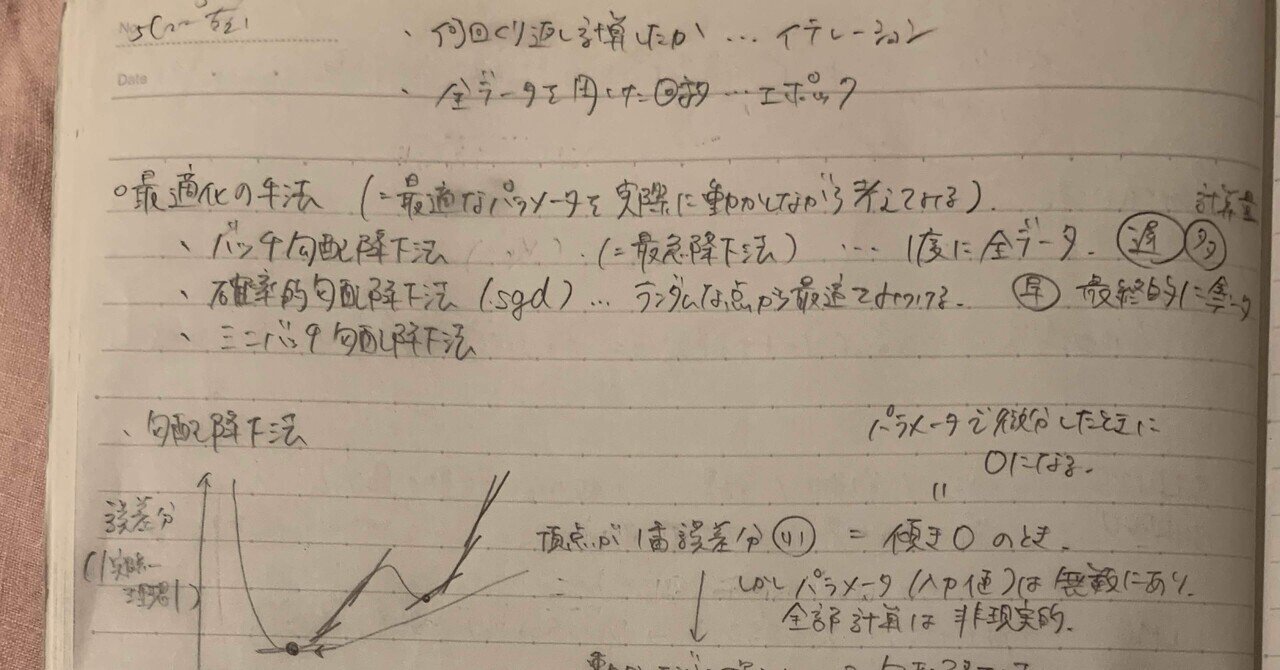 ・何回くり返し計算したか … イテレーション
Date
・全データを用いた回数 … エポック
○最適化の手法 (=最適なパラメータを実際に動かしながら考えてみる)
計算量
・バッチ勾配降下法 (=最急降下法) … 1度に全データ. 遅 多
・確率的勾配降下法 (sgd) … ランダムな点から最適を見つける. 早 最終的に全データ
・ミニバッチ勾配降下法
・勾配降下法
パラメータで微分したときに
0になる.
=
誤差分
頂点が1番誤差分小 = 傾き0のとき.
(|実際-
理想|)
しかしパラメータ(入力値)は無数にあり
全部計算は非現実的.